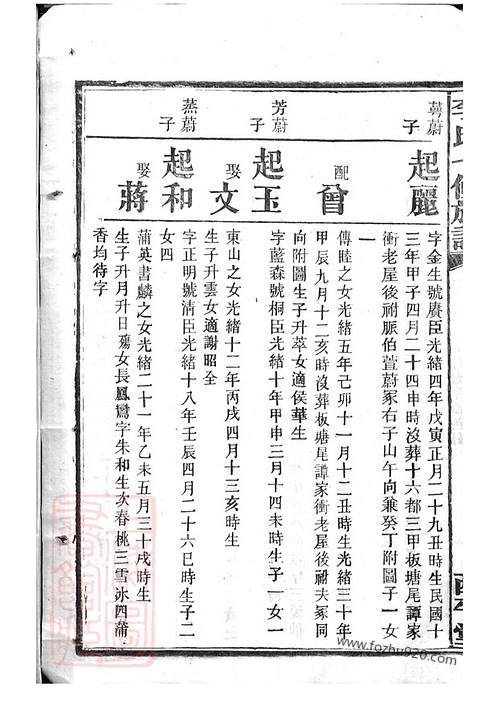 李氏七修族譜
蕚蔚子
起麗
字金生號賡臣光緒四年戊寅正月二十九丑時生民國十
三年甲子四月二十四申時沒葬十六都三甲板塘尾譚家
衝老屋後祔脈伯萱蔚冢右子山午向兼癸丁附圖子一女
一
配曾
傳睦之女光緒五年己卯十一月十二丑時生光緒三十年
甲辰九月十二亥時沒葬板塘尾譚家衝老屋後祔夫冢同
向附圖生子升萃女適侯華生
芳蔚子
起玉
字藍森號桐臣光緒十年甲申三月十四未時生子一女一
娶文
東山之女光緒十二年丙戌四月十三亥時生
生子升雲女適謝昭全
蒸蔚子
起和
字正明號清臣光緒十八年壬辰四月二十六巳時生子二
女四
娶蔣
蒲英書麟之女光緒二十一年乙未五月三十戌時生
生子升月升日殤女長鳳鸞字朱和生次春桃三雪冰四蒲
香均待字
西平堂
www.fozhu920.com